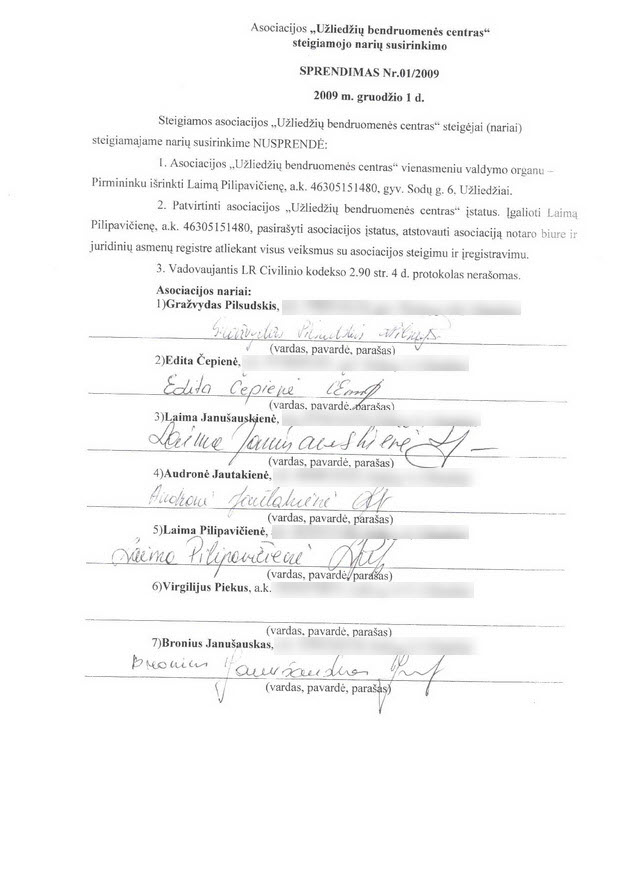 Asociacijos „Užliedžių bendruomenės centras“
steigiamojo narių susirinkimo
SPRENDIMAS Nr.01/2009
2009 m. gruodžio 1 d.
Steigiamos asociacijos „Užliedžių bendruomenės centras“ steigėjai (nariai)
steigiamajame narių susirinkime NUSPRENDĖ:
1. Asociacijos „Užliedžių bendruomenės centras“ vienasmeniu valdymo organu –
Pirmininku išrinkti Laimą Pilipavičienę, a.k. 46305151480, gyv. Sodų g. 6, Užliedžiai.
2. Patvirtinti asociacijos „Užliedžių bendruomenės centras“ įstatus. Įgalioti Laimą
Pilipavičienę, a.k. 46305151480, pasirašyti asociacijos įstatus, atstovauti asociaciją notaro biure ir
juridinių asmenų registre atliekant visus veiksmus su asociacijos steigimu ir įregistravimu.
3. Vadovaujantis LR Civilinio kodekso 2.90 str. 4 d. protokolas nerašomas.
Asociacijos nariai:
1)Gražvydas Pilsudskis,
Gražvydas Pilsudskis
(vardas, pavardė, parašas)
2)Edita Čepienė,
Edita Čepienė
(vardas, pavardė, parašas)
3)Laima Janušauskienė,
Laima Janušauskienė
(vardas, pavardė, parašas)
4)Audronė Jautakienė,
Audronė Jautakienė
(vardas, pavardė, parašas)
5)Laima Pilipavičienė,
Laima Pilipavičienė
(vardas, pavardė, parašas)
6)Virgilijus Piekus, a.k.
(vardas, pavardė, parašas)
7)Bronius Janušauskas,
Bronius Janušauskas
(vardas, pavardė, parašas)